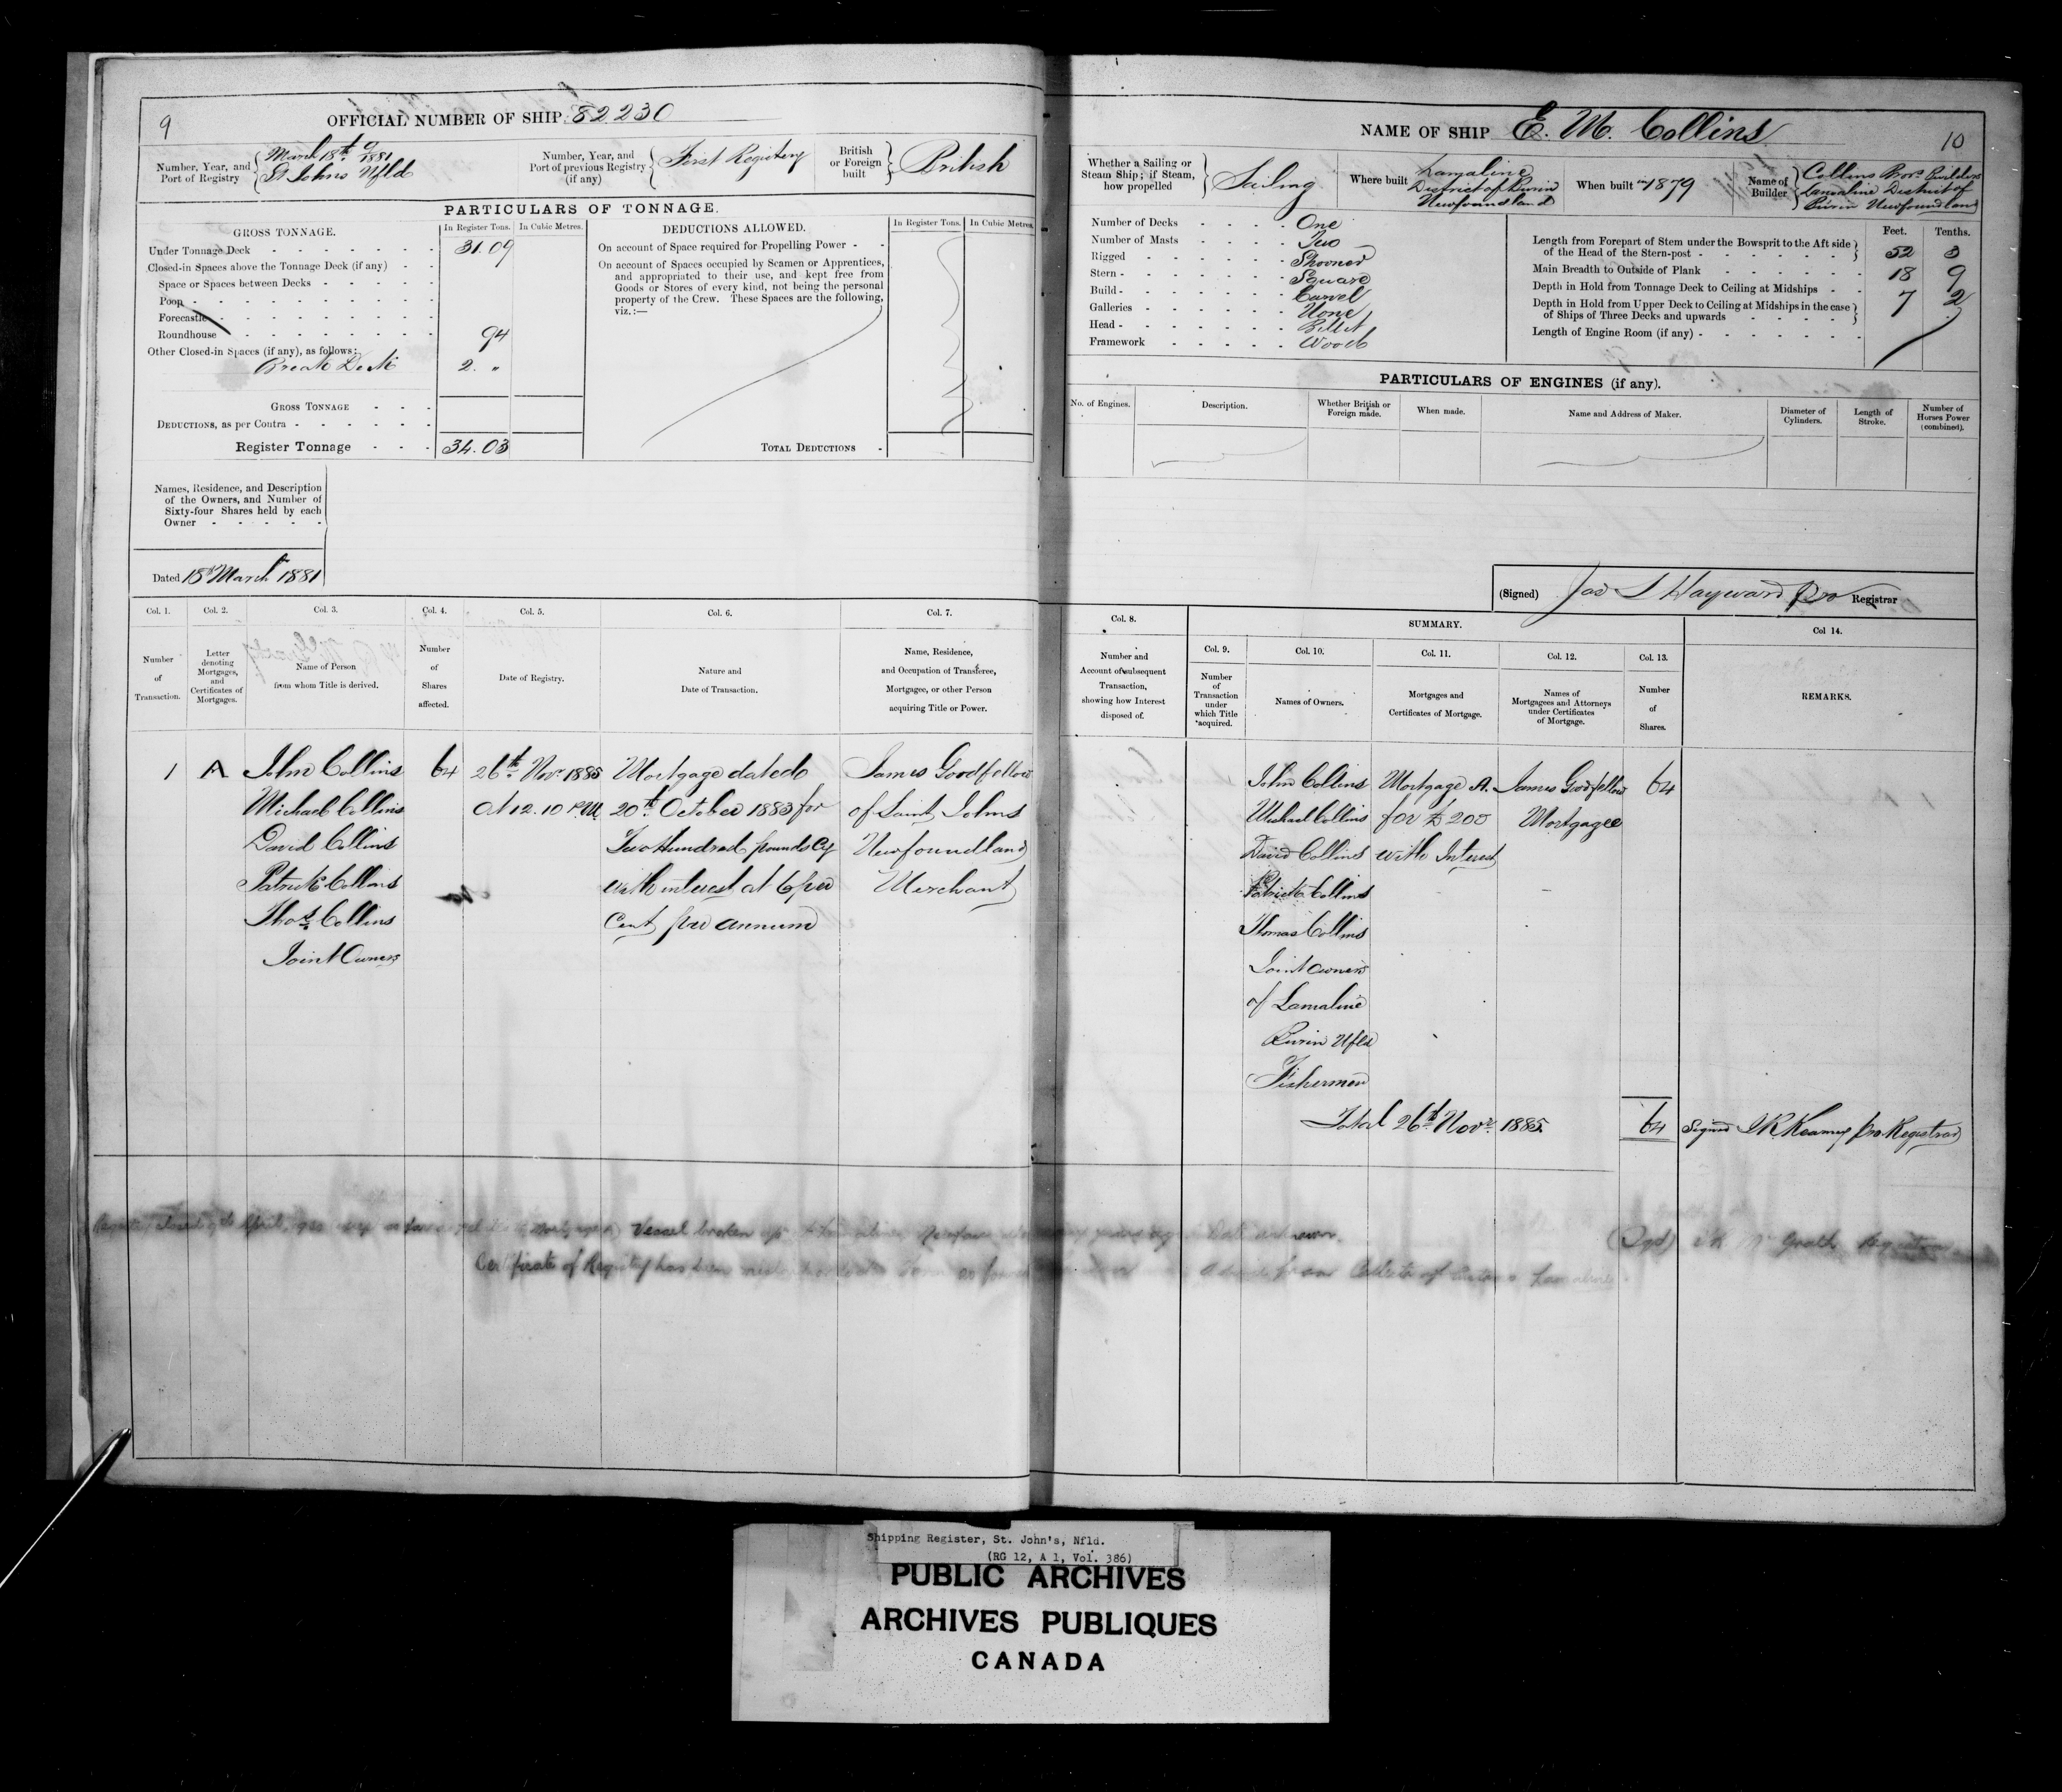 9
OFFICIAL NUMBER OF SHIP 82230
Number, Year, and Port of Registry
March 18th 9 1881
St Johns Nfld
Number, Year, and Port of previous Registry (if any)
First Registry
British or Foreign built
British
PARTICULARS OF TONNAGE.
GROSS TONNAGE.
In Register Tons.
In Cubic Metres.
DEDUCTIONS ALLOWED.
In Register Tons.
In Cubic Metres.
Under Tonnage Deck 31.09
Closed-in Spaces above the Tonnage Deck (if any)
Space or Spaces between Decks
Poop
Forecastle
Roundhouse 94
Other Closed-in Spaces (if any), as follows:
Break Deck 2. "
GROSS TONNAGE
DEDUCTIONS, as per Contra
Register Tonnage 34.03
On account of Space required for Propelling Power
On account of Spaces occupied by Seamen or Apprentices,
and appropriated to their use, and kept free from
Goods or Stores of every kind, not being the personal
property of the Crew. These Spaces are the following,
viz.:—
TOTAL DEDUCTIONS
Names, Residence, and Description
of the Owners, and Number of
Sixty-four Shares held by each
Owner
Dated 18th March 1881
Col. 1.
Col. 2.
Col. 3.
Col. 4.
Col. 5.
Col. 6.
Col. 7.
Number of Transaction.
Letter denoting Mortgages, and Certificates of Mortgages.
Name of Person from whom Title is derived.
Number of Shares affected.
Date of Registry.
Nature and Date of Transaction.
Name, Residence, and Occupation of Transferee, Mortgagee, or other Person acquiring Title or Power.
1 A John Collins 64 26th Novr 1885 Mortgage dated James Goodfellow
Michael Collins At 12.10 P.M. 20th October 1883 for of Saint Johns
David Collins Two Hundred pounds Cy Newfoundland
Patrick Collins with interest at 6 per Merchant
Thos Collins Cent per annum
Joint Owners
NAME OF SHIP E. M. Collins
10
Whether a Sailing or Steam Ship; if Steam, how propelled
Sailing
Where built
Lamaline
District of Burin
Newfoundland
When built in 1879
Name of Builder
Collins Bros Builders
Lamaline District of
Burin Newfoundland
Number of Decks One
Number of Masts Two
Rigged Shooner
Stern Square
Build Carvel
Galleries None
Head Billet
Framework Wood
Feet. Tenths.
Length from Forepart of Stem under the Bowsprit to the Aft side
of the Head of the Stern-post 52 3
Main Breadth to Outside of Plank 18 9
Depth in Hold from Tonnage Deck to Ceiling at Midships 7 2
Depth in Hold from Upper Deck to Ceiling at Midships in the case
of Ships of Three Decks and upwards
Length of Engine Room (if any)
PARTICULARS OF ENGINES (if any).
No. of Engines.
Description.
Whether British or Foreign made.
When made.
Name and Address of Maker.
Diameter of Cylinders.
Length of Stroke.
Number of Horses Power (combined).
(Signed) Jas S Hayward pro Registrar
Col. 8.
SUMMARY.
Col 14.
Col. 9.
Col. 10.
Col. 11.
Col. 12.
Col. 13.
Number and Account of subsequent Transaction, showing how Interest disposed of.
Number of Transaction under which Title acquired.
Names of Owners.
Mortgages and Certificates of Mortgage.
Names of Mortgagees and Attorneys under Certificates of Mortgage.
Number of Shares.
REMARKS.
John Collins Mortgage A. James Goodfellow 64
Michael Collins for £ 200 Mortgagee
David Collins with Interest
Patrick Collins
Thomas Collins
Joint owners
of Lamaline
Burin Nfld
Fishermen
Total 26th Novr. 1885. 64 Signed pro Registrar
Vessel broken up
(Sgd) Registrar
Certificate of Registry has been
Shipping Register, St. John's, Nfld.
(RG 12, A 1, Vol. 386)
PUBLIC ARCHIVES
ARCHIVES PUBLIQUES
CANADA